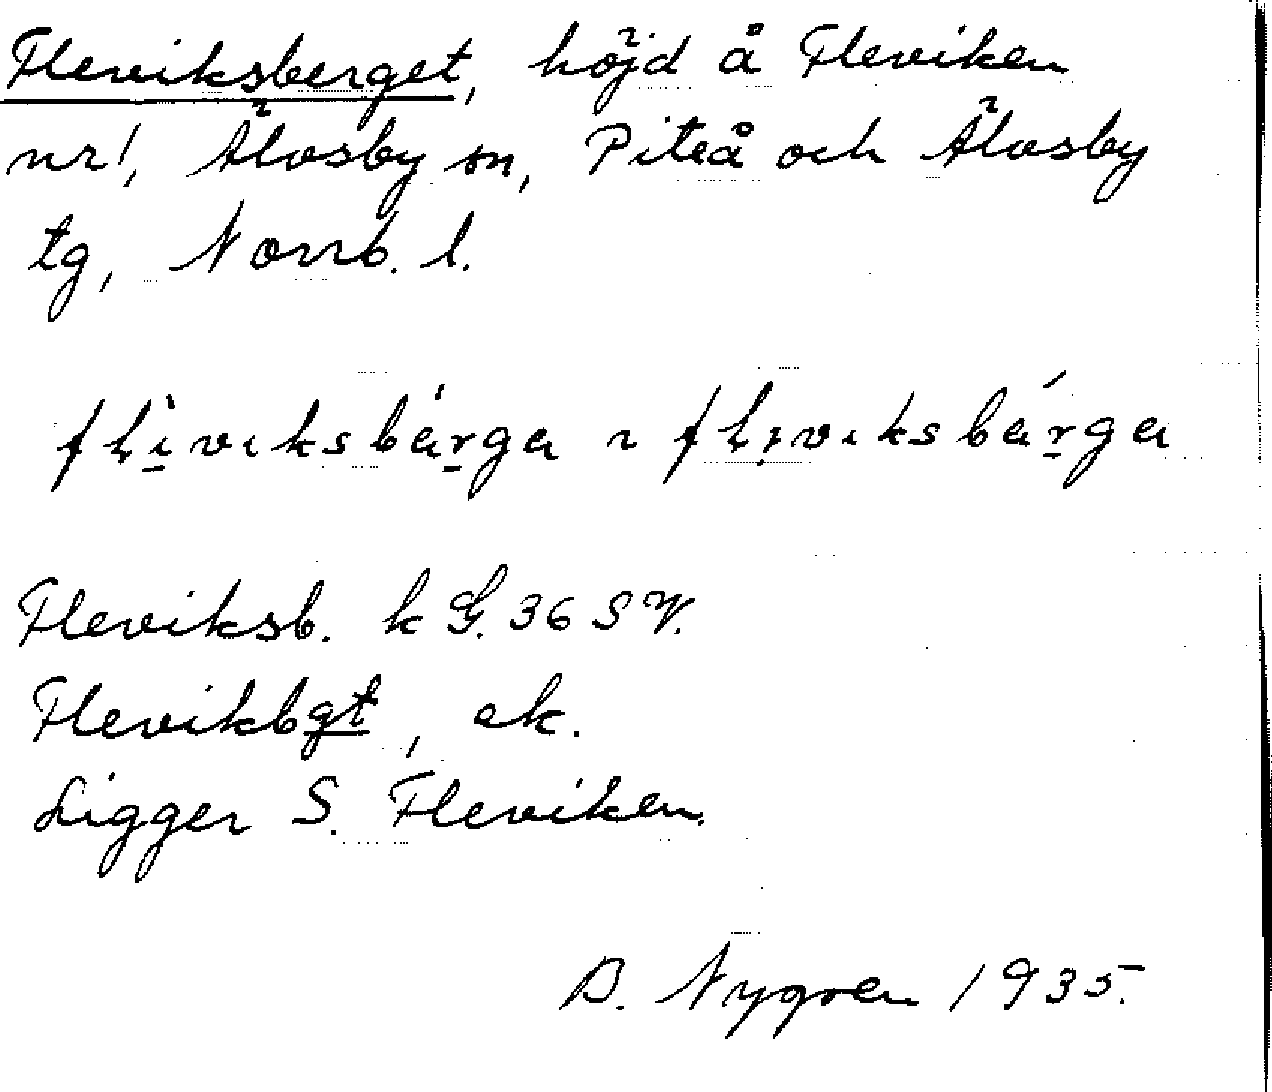 Fleviksberget, höjd å Fleviken
nr 1, Älvsby sn, Piteå och Älvsby
tg, Norrb. l.
flìviksbárga ~ flịviksbárga
Fleviksb. k G. 36 S V.
Flevikbgt, ek.
Ligger S. Fleviken.
B. Nygren 1935.